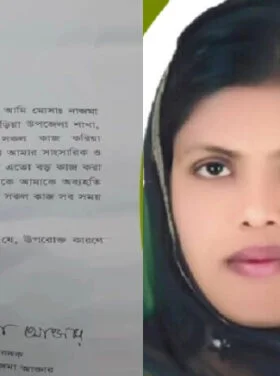 আমি মোসাঃ নাজমা
উপজেলা শাখা,
সকল কাজ করিয়া
আমার সাংসারিক ও
এতো বড় কাজ করা
কে আমাকে অব্যহতি
সকল কাজ সব সময়
যে, উপরোক্ত কারণে
আক্তার